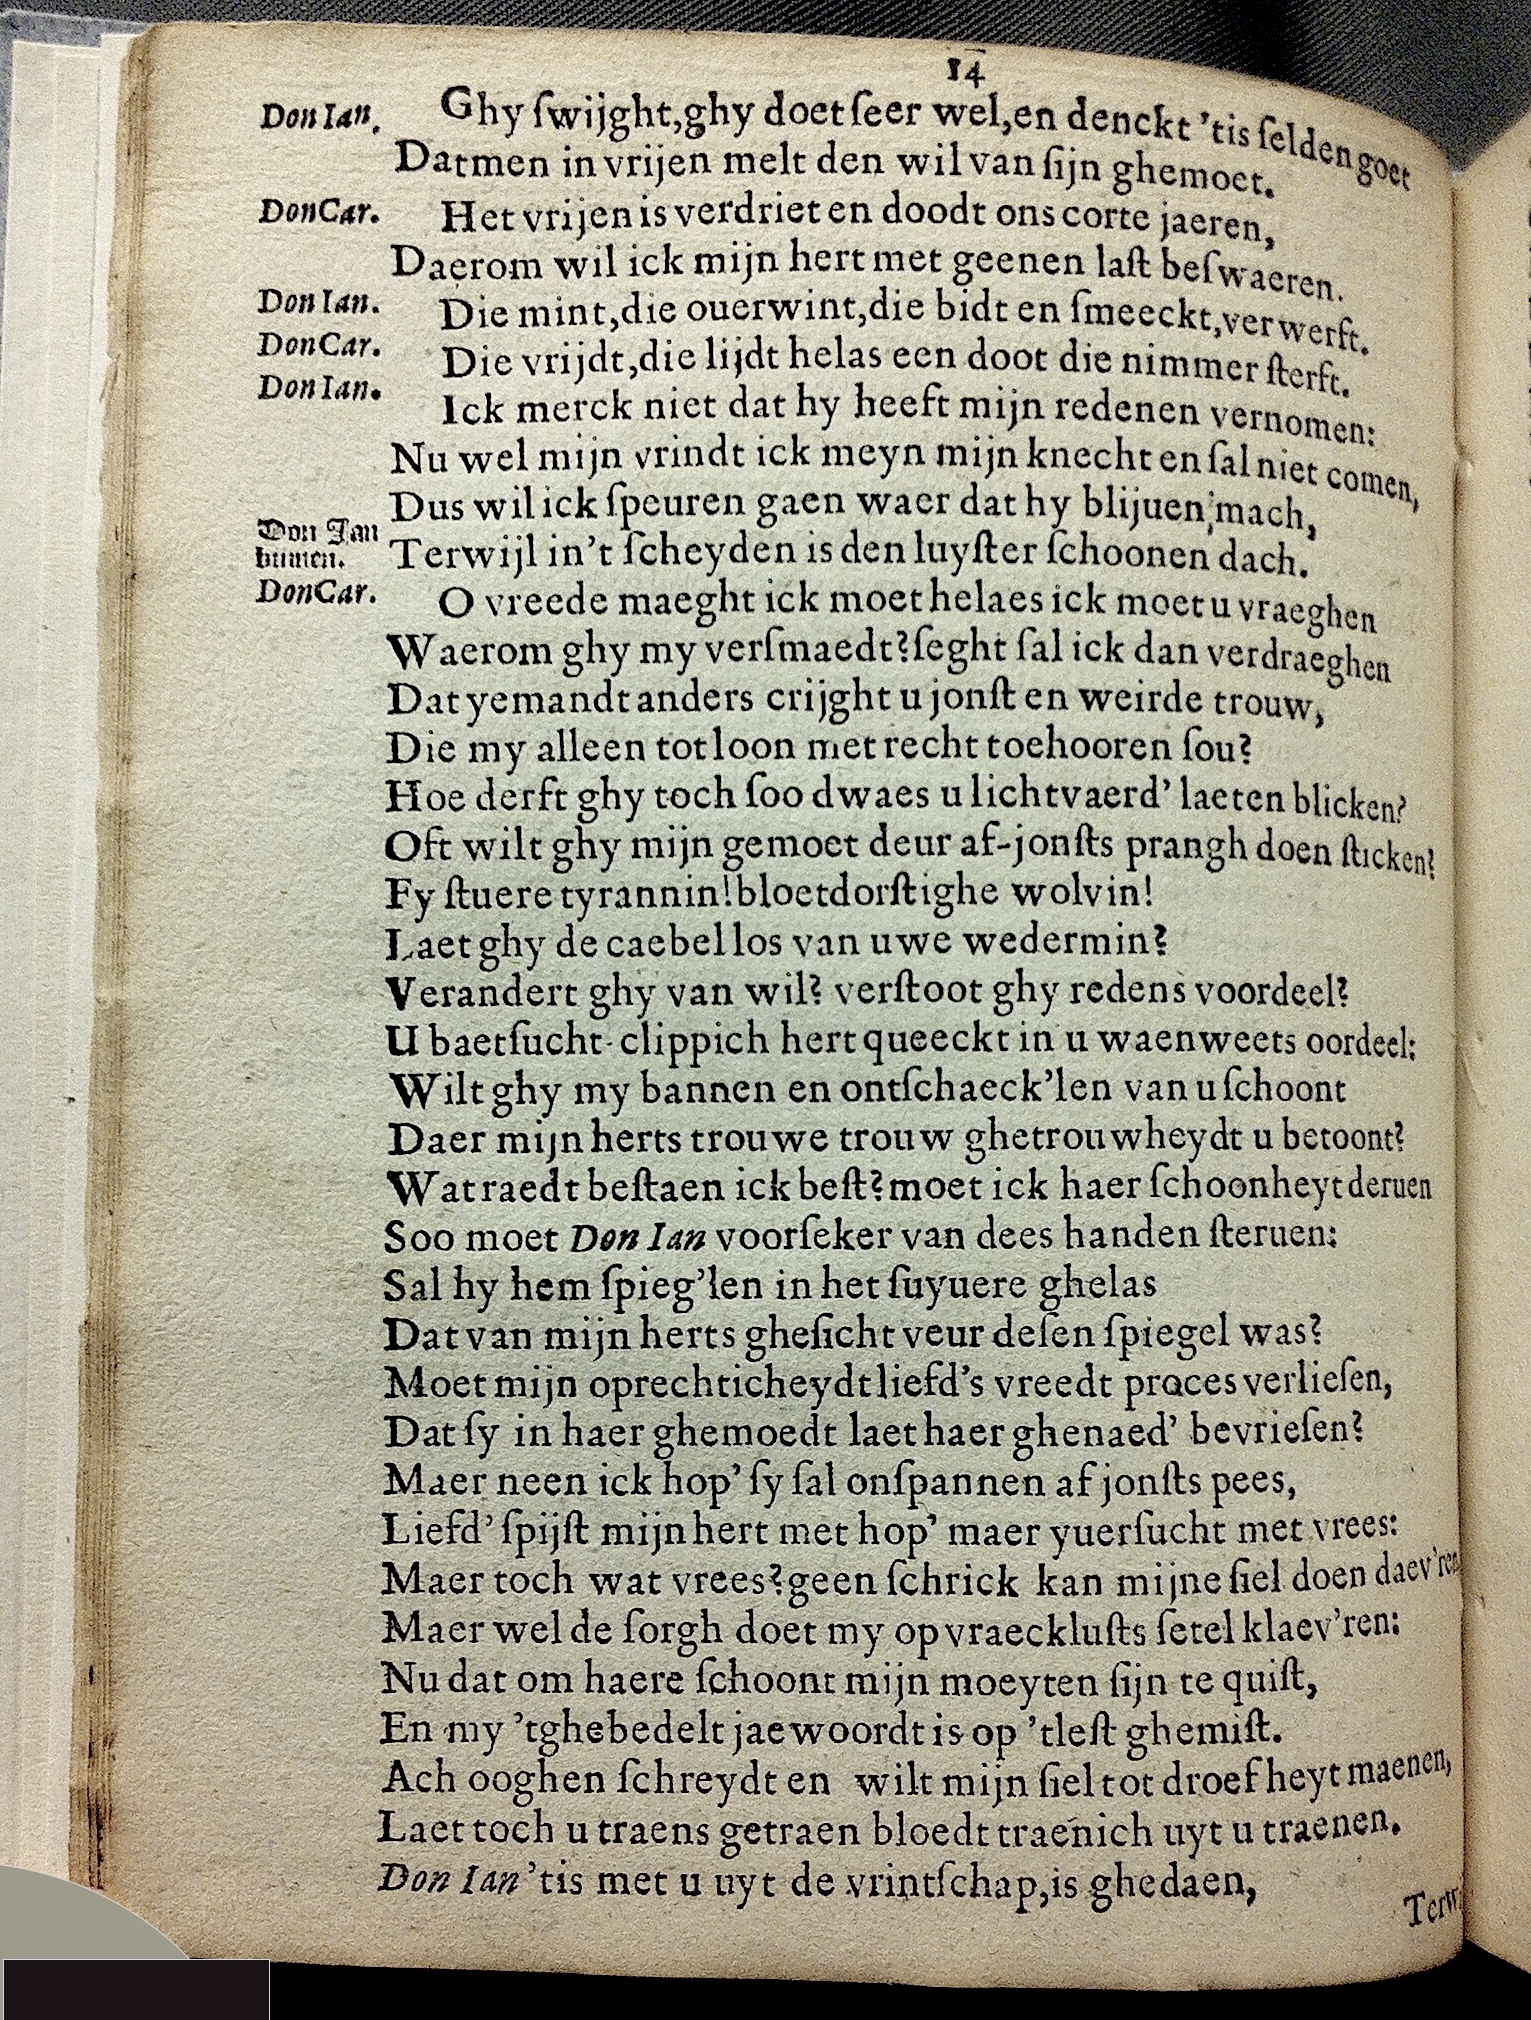 14
Don Ian. Ghy ſwijght, ghy doet ſeer wel, en denckt 'tis ſelden goet
Datmen in vrijen melt den wil van ſijn ghemoet.
Don Car. Het vrijen is verdriet en doodt ons corte jaeren,
Daerom wil ick mijn hert met geenen laſt beſwaeren.
Don Ian. Die mint, die ouerwint, die bidt en ſmeeckt, verwerft.
Don Car. Die vrijdt, die lijdt helas een doot die nimmer ſterft.
Don Ian. Ick merck niet dat hy heeft mijn redenen vernomen:
Nu wel mijn vrindt ick meyn mijn knecht en ſal niet comen,
Dus wil ick ſpeuren gaen waer dat hy blijuen mach,
Don Jan binnen. Terwijl in't ſcheyden is den luyſter ſchoonen dach.
Don Car. O vreede maeght ick moet helaes ick moet u vraeghen
Waerom ghy my verſmaedt? ſeght ſal ick dan verdraeghen
Dat yemandt anders crijght u jonſt en weirde trouw,
Die my alleen tot loon met recht toehooren ſou?
Hoe derft ghy toch ſoo dwaes u lichtvaerd' laeten blicken?
Oft wilt ghy mijn gemoet deur af-jonſts prangh doen ſticken?
Fy ſtuere tyrannin! bloetdorſtighe wolvin!
Laet ghy de caebel los van uwe wedermin?
Verandert ghy van wil? verſtoot ghy redens voordeel?
U baetſucht-clippich hert queeckt in u waenweets oordeel;
Wilt ghy my bannen en ontſchaeck'len van u ſchoont
Daer mijn herts trouwe trouw ghetrouwheydt u betoont?
Wat raedt beſtaen ick beſt? moet ick haer ſchoonheyt deruen
Soo moet Don Ian voorſeker van dees handen ſteruen:
Sal hy hem ſpieg'len in het ſuyuere ghelas
Dat van mijn herts gheſicht veur deſen ſpiegel was?
Moet mijn oprechticheydt liefd's vreedt proces verlieſen,
Dat ſy in haer ghemoedt laet haer ghenaed' bevrieſen?
Maer neen ick hop' ſy ſal onſpannen af jonſts pees,
Liefd' ſpijſt mijn hert met hop' maer yuerſucht met vrees:
Maer toch wat vrees? geen ſchrick kan mijne ſiel doen daev'ren
Maer wel de ſorgh doet my op vraeckluſts ſetel klaev'ren:
Nu dat om haere ſchoont mijn moeyten ſijn te quiſt,
En my 'tghebedelt jaewoordt is op 'tleſt ghemiſt.
Ach ooghen ſchreydt en wilt mijn ſiel tot droefheyt maenen,
Laet toch u traens getraen bloedt traenich uyt u traenen.
Don Ian 'tis met u uyt de vrintſchap, is ghedaen,